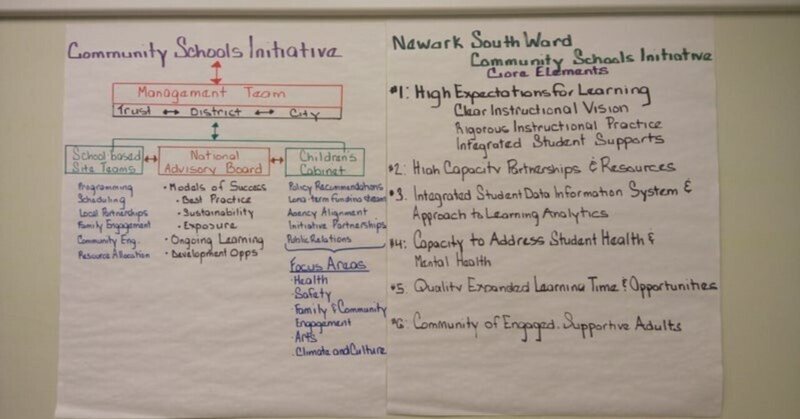 Community Schools Initiative
Management Team
Trust ↔ District ↔ City
School-based
Site Teams
Programming
Scheduling
Local Partnerships
Family Engagement
Community Eng.
Resource Allocation
National
Advisory Board
• Models of Success
• Best Practice
• Sustainability
• Exposure
• Ongoing Learning
• Development Opps
Children's
Cabinet
Policy Recommendations
Long-term funding streams
Agency Alignment
Initiative Partnerships
Public Relations
Focus Areas
• Health
• Safety
• Family & Community
Engagement
• Arts
• Climate and Culture
Newark South Ward
Community Schools Initiative
Core Elements
#1: High Expectations for Learning
Clear Instructional Vision
Rigorous Instructional Practice
Integrated Student Supports
#2: High Capacity Partnerships & Resources
#3. Integrated Student Data Information System &
Approach to Learning Analytics
#4: Capacity to Address Student Health &
Mental Health
#5. Quality Expanded Learning Time & Opportunities
#6: Community of Engaged, Supportive Adults